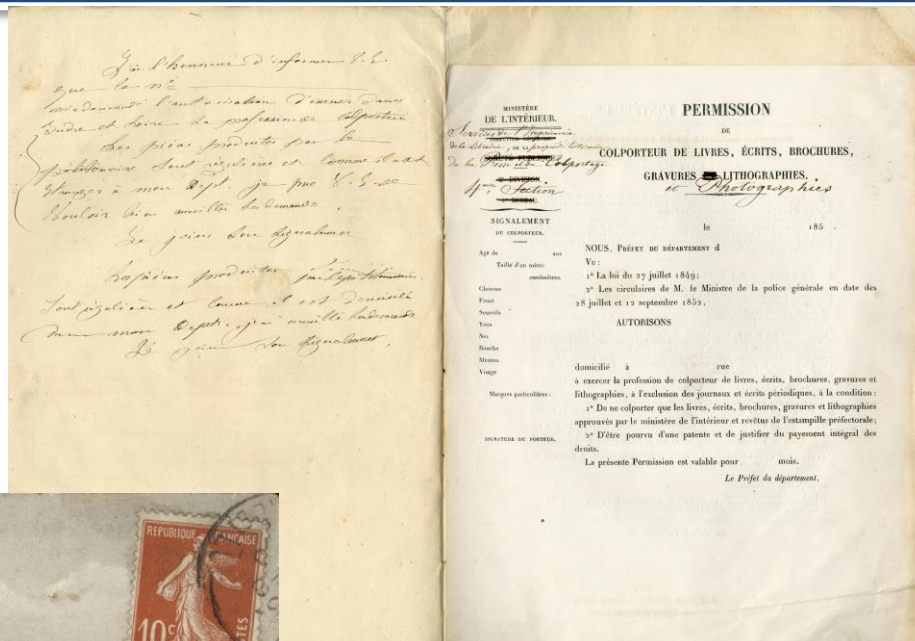 J'ai l'honneur d'informer V. E.
que le nè
m'a demandé l'autorisation d'exercer dans
Indre et Loire la profession de Colporteur
Les pièces produites par le
pétitionnaire sont régulières et comme il est
étranger à mon Dépt. je prie V. E. de
vouloir bien accueillir sa demande.
Je joins son signalement
Les pièces produites par le pétitionnaire
sont régulières et comme il est domicilié
dans mon Dépt. j'ai accueilli sa demande
Je joins son signalement.
MINISTÈRE
DE L'INTÉRIEUR.
Services de l'Imprimerie
de la Librairie, DE LA propriété littéraire
de la Presse et du Colportage
2e DIVISION.
4me Section
1er BUREAU.
SIGNALEMENT
DU COLPORTEUR.
Agé de ans
Taille d'un mètre
centimètres.
Cheveux
Front
Sourcils
Yeux
Nez
Bouche
Menton
Visage
Marques particulières :
SIGNATURE DU PORTEUR.
PERMISSION
DE
COLPORTEUR DE LIVRES, ÉCRITS, BROCHURES,
GRAVURES LITHOGRAPHIES.
et Photographies
le 185 .
NOUS, PRÉFET DU DÉPARTEMENT d
Vu :
1° La loi du 27 juillet 1849;
2° Les circulaires de M. le Ministre de la police générale en date des
28 juillet et 12 septembre 1852,
AUTORISONS
domicilié à rue
à exercer la profession de colporteur de livres, écrits, brochures, gravures et
lithographies, à l'exclusion des journaux et écrits périodiques, à la condition :
1° De ne colporter que les livres, écrits, brochures, gravures et lithographies
approuvés par le ministère de l'intérieur et revêtus de l'estampille préfectorale;
2° D'être pourvu d'une patente et de justifier du payement intégral des
droits.
La présente Permission est valable pour mois.
Le Préfet du département,
REPUBLIQUE FRANÇAISE
10c
POSTES